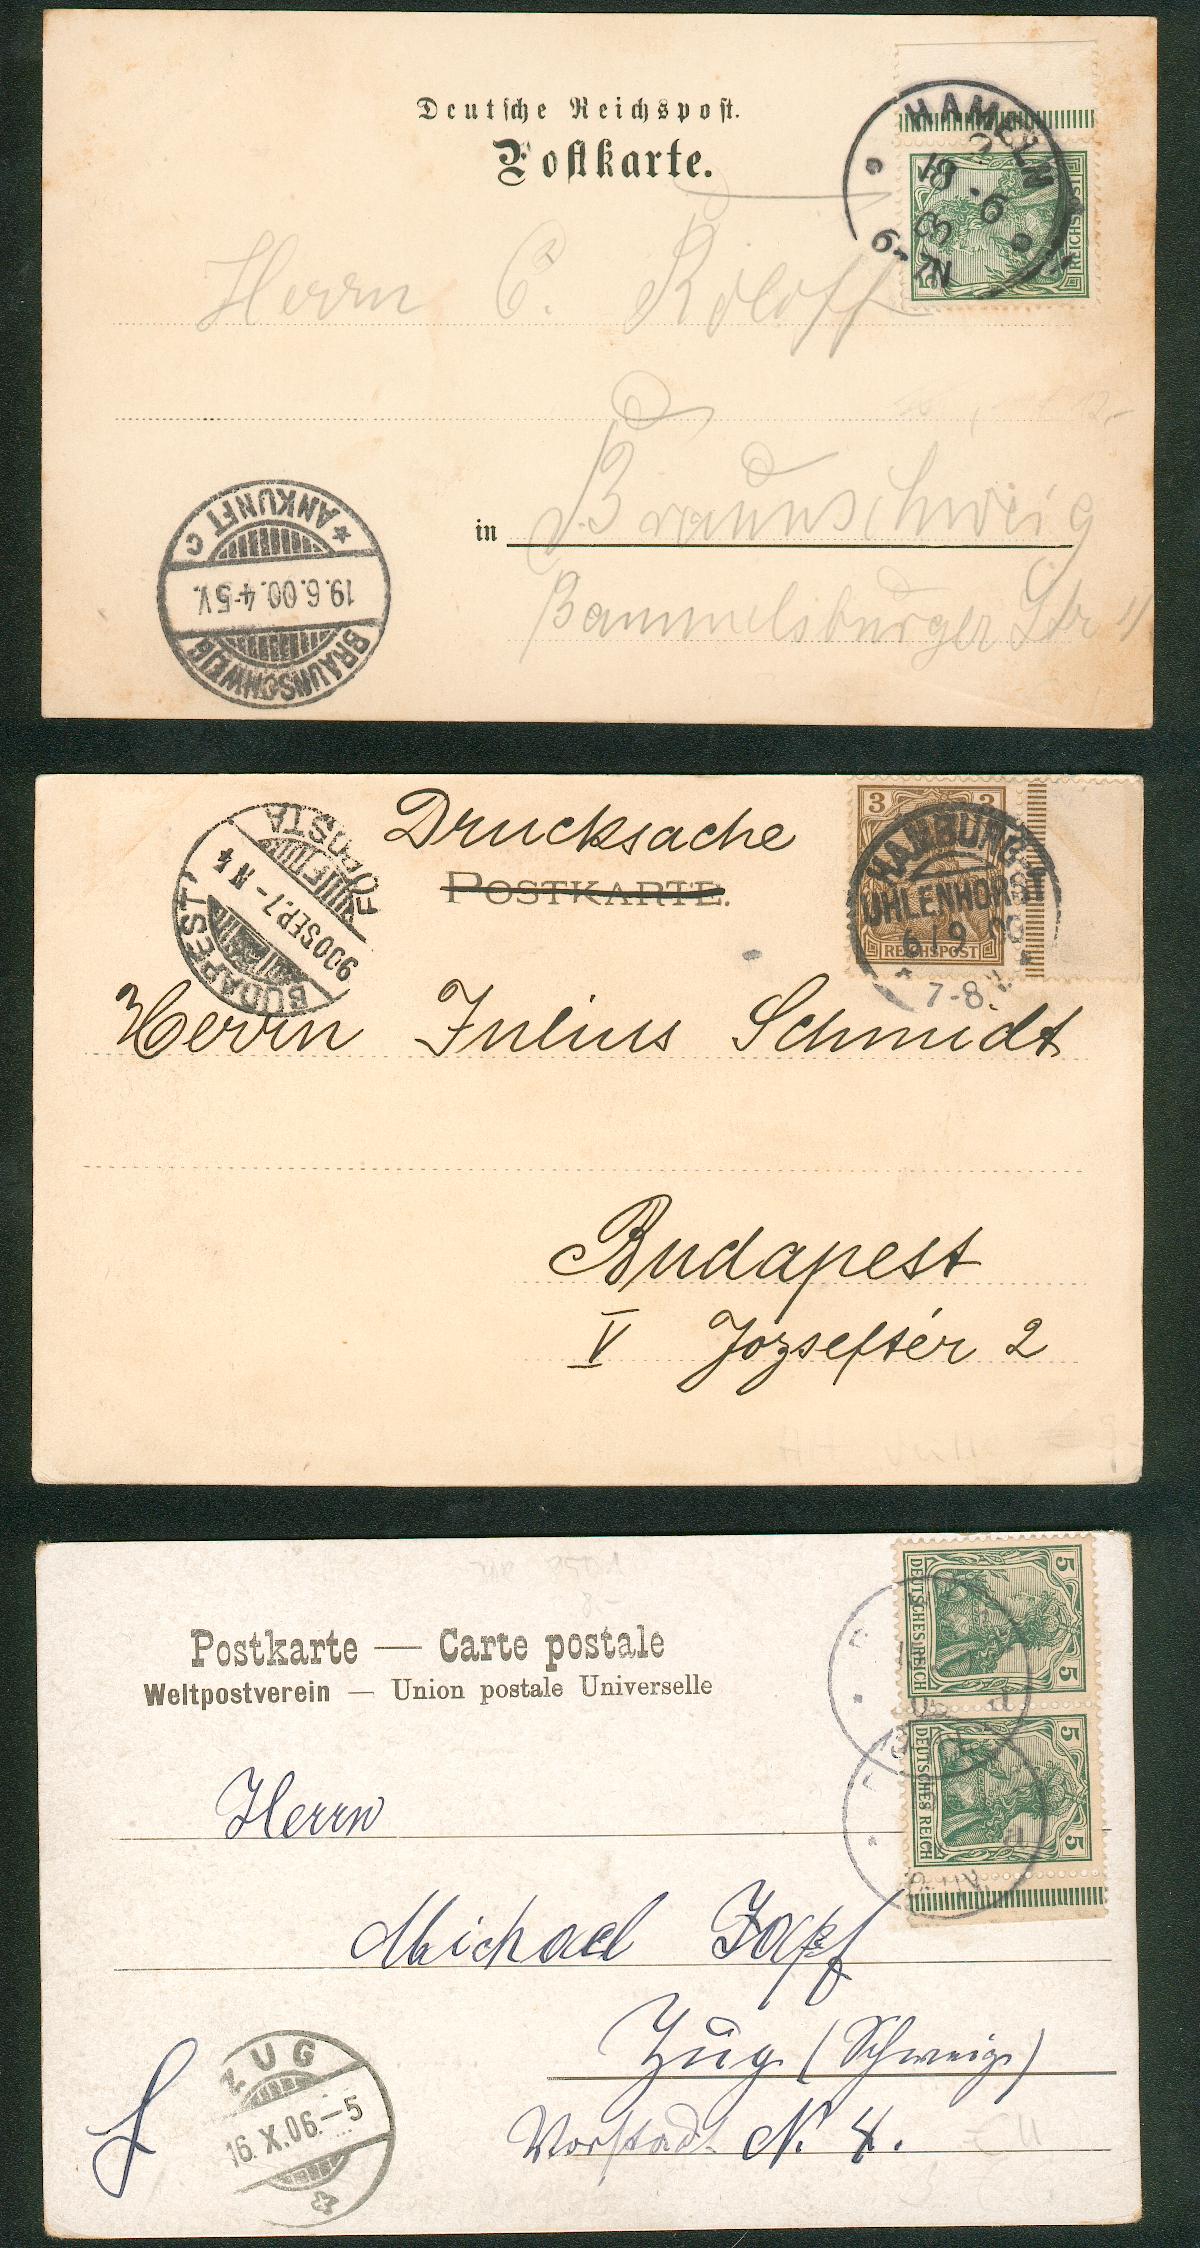 Deutsche Reichspost.
Postkarte.
HAMELN
18 6
6-7N
5
REICHSPOST
Herrn C. Roloff
in Braunschweig
Bammelsburger Str 11
BRAUNSCHWEIG
19.6.00.4-5V.
* ANKUNFT C
Drucksache
POSTKARTE.
3 3
REICHSPOST
HAMBURG
UHLENHORST
6/9 00
7-8V.
BUDAPEST
900 SEP. 7 - N 4
FŐPOSTA
Herrn Julius Schmidt
Budapest
V Józseftér 2
Postkarte — Carte postale
Weltpostverein — Union postale Universelle
5 5
DEUTSCHES REICH
5 5
DEUTSCHES REICH
Herrn
Michael Zapf
Zug (Schweiz)
Vorstadt N. 4.
ZUG
16.X.06.-5